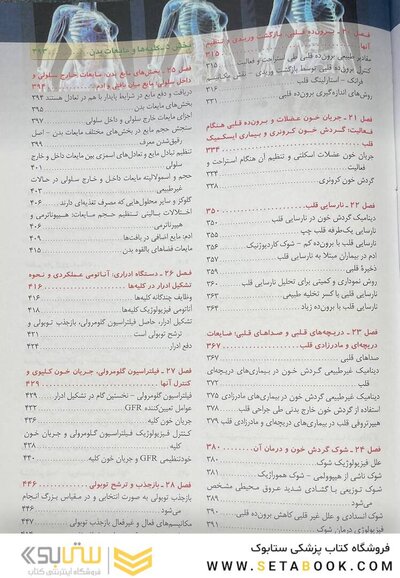 فصل ۲۰ - برون‌ده قلبی، بازگشت وریدی و تنظیم
آنها
مقادیر طبیعی برون‌ده قلبی طی استراحت و فعالیت ۳۱۵
کنترل برون‌ده قلبی توسط بازگشت وریدی - نقش مکانیسم
فرانک - استارلینگ قلب ۳۱۶
روش‌های اندازه‌گیری برون‌ده قلبی ۳۳۱
فصل ۲۱ - جریان خون عضلات و برون‌ده قلبی هنگام
فعالیت؛ گردش خون کرونری و بیماری ایسکمیک
قلب ۳۳۴
جریان خون عضلات اسکلتی و تنظیم آن هنگام استراحت و
فعالیت ۳۳۴
گردش خون کرونری ۳۳۸
فصل ۲۲ - نارسایی قلب ۳۵۰
دینامیک گردش خون در نارسایی قلب ۳۵۰
نارسایی یک‌طرفه قلب چپ ۳۵۴
نارسایی قلب با برون‌ده کم - شوک کاردیوژنیک ۳۵۶
ادم در بیماران مبتلا به نارسایی قلب ۳۵۷
ذخیرهٔ قلبی ۳۵۹
روش نموداری و کمیتی برای تحلیل نارسایی قلب ۳۶۰
نارسایی قلبی با کسر تخلیه طبیعی ۳۶۳
نارسایی قلب با برون‌ده زیاد ۳۶۴
فصل ۲۳ - دریچه‌های قلبی و صداهای قلبی؛ ضایعات
دریچه‌ای و مادرزادی قلب ۳۶۷
صداهای قلبی ۳۶۷
دینامیک غیرطبیعی گردش خون در بیماری‌های دریچه‌ای
قلب ۳۷۲
دینامیک غیرطبیعی گردش خون در بیماری‌های مادرزادی ۳۷۵
استفاده از گردش خون خارج بدنی طی جراحی قلب ۳۷۸
هیپرتروفی قلب در بیماری‌های دریچه‌ای و مادرزادی قلب ۳۷۹
فصل ۲۴ - شوک گردش خون و درمان آن ۳۸۰
علل فیزیولوژیک شوک ۳۸۰
شوک ناشی از هیپوولمی - شوک هموراژیک ۳۸۱
شوک توزیعی با گشادی شدید عروق محیطی مشخص
می‌شود ۳۸۹
شوک انسدادی و علل غیر قلبی کاهش برون‌ده قلبی ۳۹۰
فیزیولوژی درمان شوک
بخش ۵ - کلیه‌ها و مایعات بدن ۳۹۳
فصل ۲۵ - بخش‌های مایع بدن: مایعات خارج سلولی و
داخل سلولی؛ مایع میان بافتی و ادم ۳۹۴
دریافت و دفع مایع در شرایط پایدار با هم در تعادل هستند ۳۹۴
بخش‌های مایعات بدن ۳۹۵
اجزای مایعات خارج سلولی و داخل سلولی ۳۹۷
سنجش حجم مایع در بخش‌های مختلف مایعات بدن - اصل
رقیق‌شدن معرف ۳۹۹
تنظیم تبادل مایع و تعادل‌های اسمزی بین مایعات داخل و خارج
سلولی ۴۰۱
حجم و اسمولالیته مایعات داخل و خارج سلولی در حالات
غیرطبیعی ۴۰۳
گلوکز و سایر محلول‌هایی که مصرف تغذیه‌ای دارند ۴۰۶
اختلالات بالینی تنظیم حجم مایعات: هیپوناترمی و
هیپرناترمی ۴۰۶
ادم: مایع اضافی در بافت‌ها ۴۰۹
مایعات فضاهای بالقوه بدن ۴۱۵
فصل ۲۶ - دستگاه ادراری: آناتومی عملکردی و نحوه
تشکیل ادرار در کلیه‌ها ۴۱۶
وظایف چندگانه کلیه‌ها ۴۱۶
آناتومی فیزیولوژیک کلیه‌ها ۴۱۸
تشکیل ادرار، حاصل فیلتراسیون گلومرولی، بازجذب توبولی و
ترشح توبولی است ۴۲۱
دفع ادرار ۴۲۴
فصل ۲۷ - فیلتراسیون گلومرولی، جریان خون کلیوی و
کنترل آنها ۴۲۹
فیلتراسیون گلومرولی - نخستین گام در تشکیل ادرار ۴۲۹
عوامل تعیین‌کننده GFR ۴۳۲
جریان خون کلیه ۴۳۶
کنترل فیزیولوژیک فیلتراسیون گلومرولی و جریان خون
کلیه ۴۳۸
خودتنظیمی GFR و جریان خون کلیه ۴۴۰
فصل ۲۸ - بازجذب و ترشح توبولی ۴۴۶
بازجذب توبولی به صورت انتخابی و در مقیاس بزرگ انجام
می‌شود
مکانیسم‌های فعال و غیرفعال بازجذب توبولی ۴۴۷
فروشگاه کتاب پزشکی ستابوک
WWW.SETABOOK.COM
ستابوک
فروشگاه اینترنتی کتاب